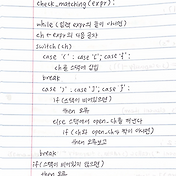 check_matching(expr):
while (입력 expr의 끝이 아니면)
ch ← expr의 다음 글자
switch(ch)
case '(': case '[': case '{':
ch를 스택에 삽입
break
case ')': case ']': case '}':
if (스택이 비어있으면)
then 오류
else 스택에서 open_ch를 꺼낸다
if (ch와 open_ch가 짝이 아니면)
then 오류보고
break
if(스택이 비어있지 않으면)
then 오류